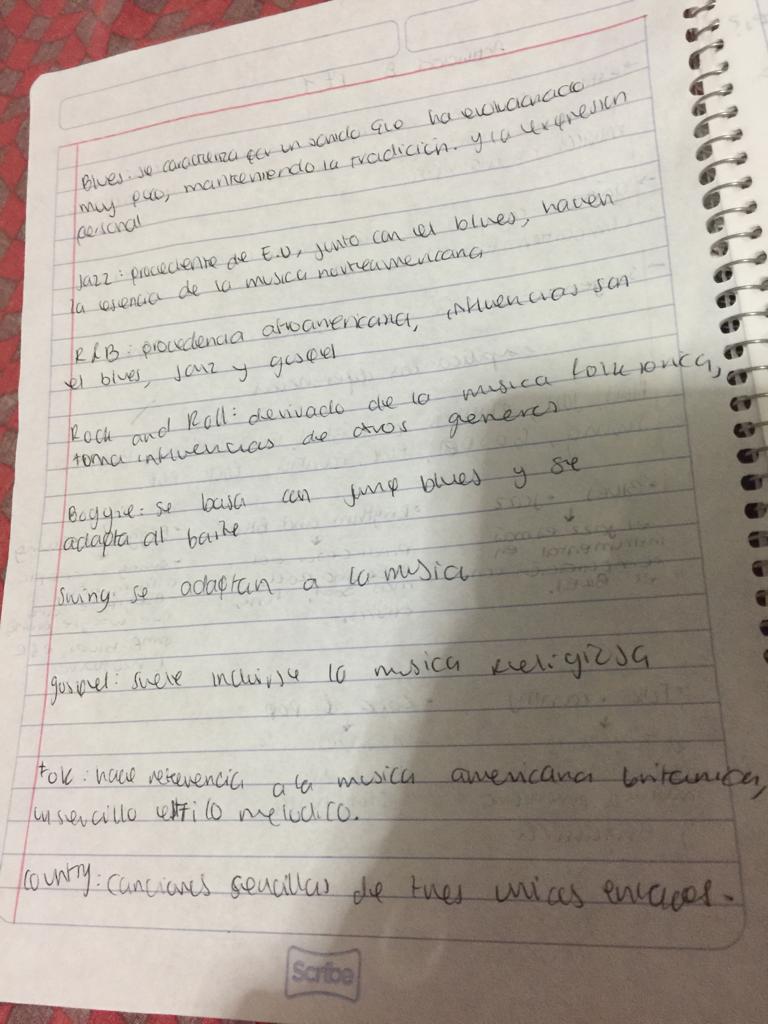 Blues: se caracteriza por un sonido que ha evolucionado
muy poco, manteniendo la tradicion. y la expresion
personal
Jazz: procedente de E.U, junto con el blues, hacen
la esencia de la musica norteamericana
R&B: procedencia afroamericana, influencias son
el blues, Jazz y gospel
Rock and Roll: derivado de la musica folklorica,
toma influencias de otros generos
Boggie: se basa con jump blues y se
adapta al baile
Swing: se adaptan a la musica
gospel: suele incluirse la musica religiosa
fok: hace referencia a la musica americana britanica,
un sencillo estilo melodico.
country: canciones sencillas de tres unicas
Scribe